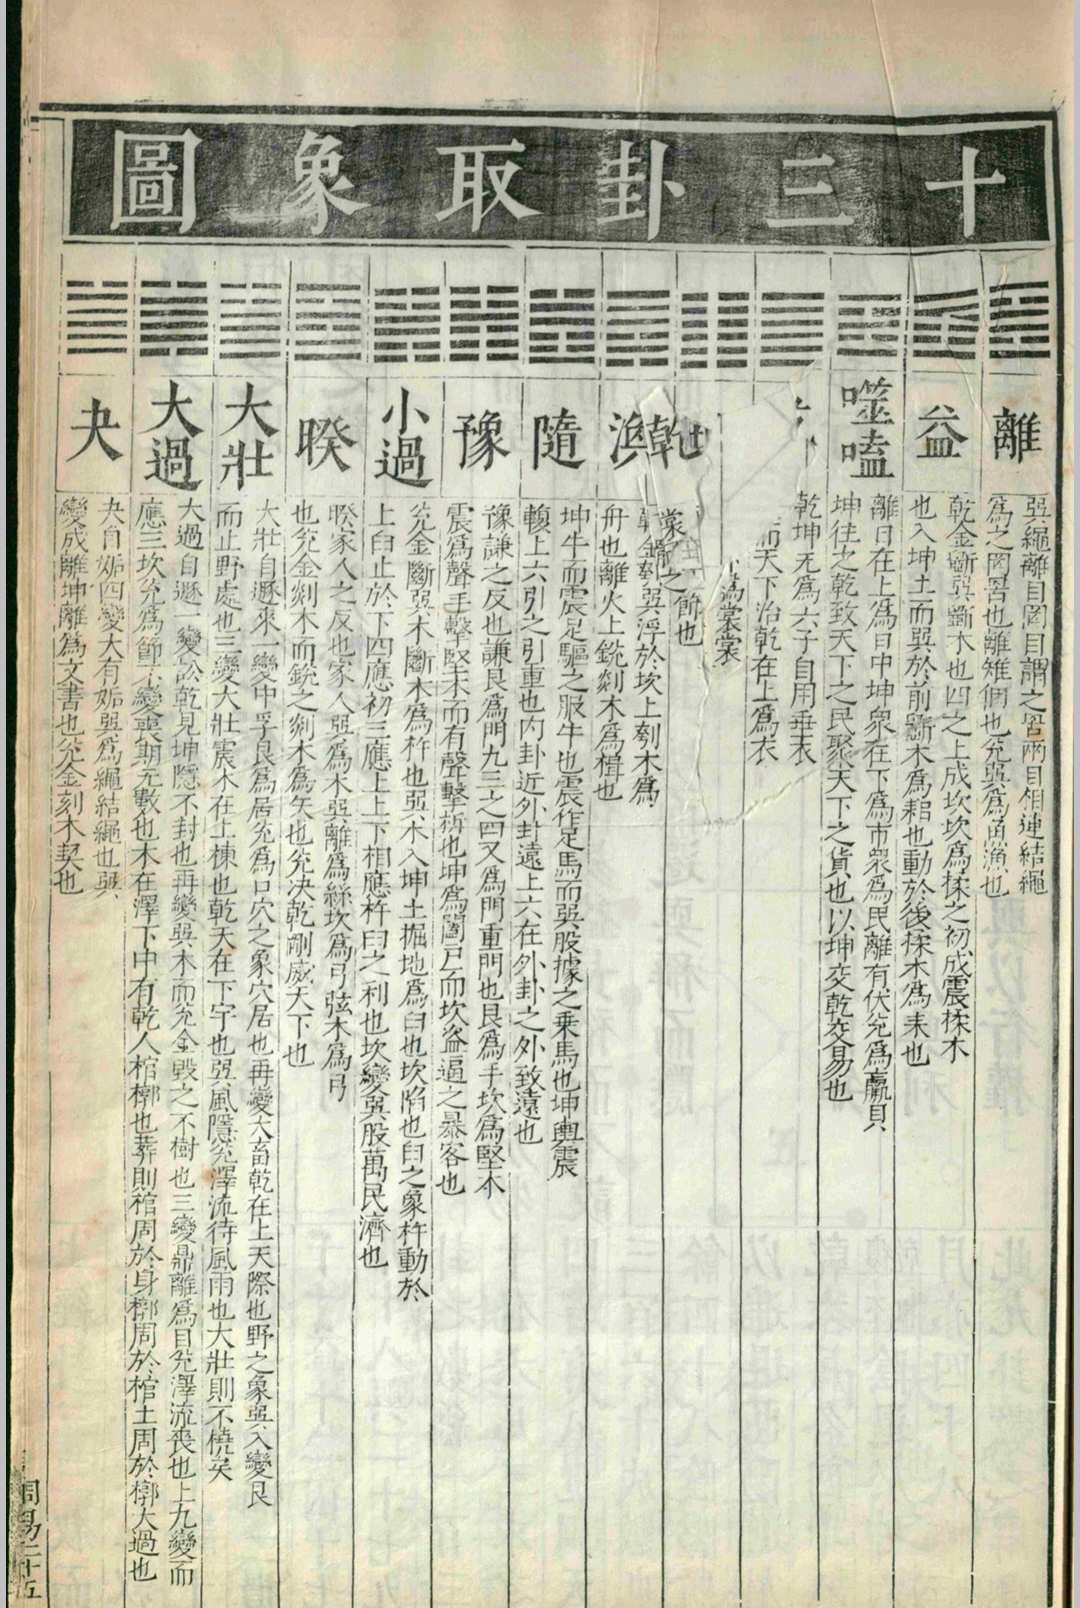 十三卦取象圖
離
巽繩離目罔目謂之罟兩目相連結繩
為之罔罟也離雉佃也兊巽為魚漁也
益
乾金斷巽斵木也四之上成坎坎為揉之初成震揉木
也入坤土而巽於前斵木為耜也動於後揉木為耒也
噬嗑
離日在上為日中坤衆在下為市衆為民離有伏兊為蠃貝
坤往之乾致天下之民聚天下之貨也以坤交乾交易也
乾坤无為六子自用垂衣
而天下治乾在上為衣
為裳裳
裳 之飾也
乾
渙
乾金刳巽浮於坎上刳木為
舟也離火上銳剡木為楫也
隨
坤牛而震足驅之服牛也震作足馬而巽股據之乗馬也坤輿震
輹上六引之引重也内卦近外卦遠上六在外卦之外致遠也
豫
豫謙之反也謙艮為門九三之四又為門重門也艮為手坎為堅木
震為聲手擊堅木而有聲擊柝也坤為闔戸而坎盗逼之暴客也
小過
兊金斷巽木斷木為杵也巽木入坤土掘地為臼也坎陷也臼之象杵動於
上臼止於下四應初三應上上下相應杵臼之利也坎變巽股萬民濟也
睽
睽家人之反也家人巽為木巽離為絲坎為弓弦木為弓
也兊金剡木而銳之剡木為矢也兊决乾剛威天下也
大壯
大壯自遯來一變中孚艮為居兊為口穴之象穴居也再變大畜乾在上天際也野之象巽入變艮
而止野處也三變大壯震木在上棟也乾天在下宇也巽風隱兊澤流待風雨也大壯則不橈矣
大過
大過自遯一變訟乾見坤隱不封也再變巽木而兊金毀之不樹也三變鼎離為目兊澤流喪也上九變而
應三坎兊為節不變喪期无數也木在澤下中有乾人棺槨也葬則棺周於身槨周於棺土周於槨大過也
夬
夬自姤四變大有姤巽為繩結繩也巽
變成離坤離為文書也兊金刻木契也
周易二十五